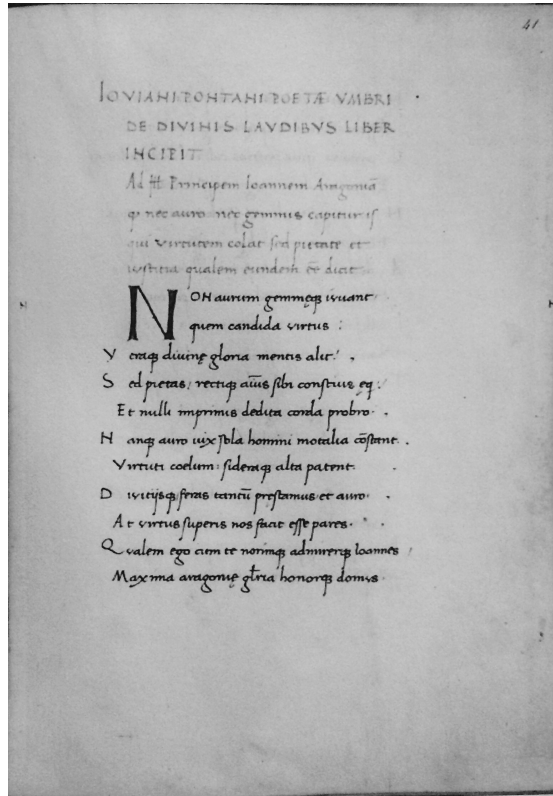 41
IOVIANI PONTANI POETÆ VMBRI
DE DIVINIS LAVDIBVS LIBER
INCIPIT
Ad Principem Ioannem Aragoniā
nec auro nec gemmis capitur is
qui virtutem colat sed pietate et
iustitia qualem eundem eē dicit
NON aurum gemmęq iuuant
quem candida virtus :
V eraq diuinę gloria mentis alit
S ed pietas: rectiq sibi eq
Et nulli imprimis dedita corda probro.
N anq auro uix sola homini motalia cōstant.
Virtuti coelum: sideraq alta patent.
D iuitijsq feras tantū prestamus et auro.
At virtus superis nos facit esse pares.
Q valem ego cum te norimq admirerq Ioannes
Maxima aragonię gloria honorq domus.